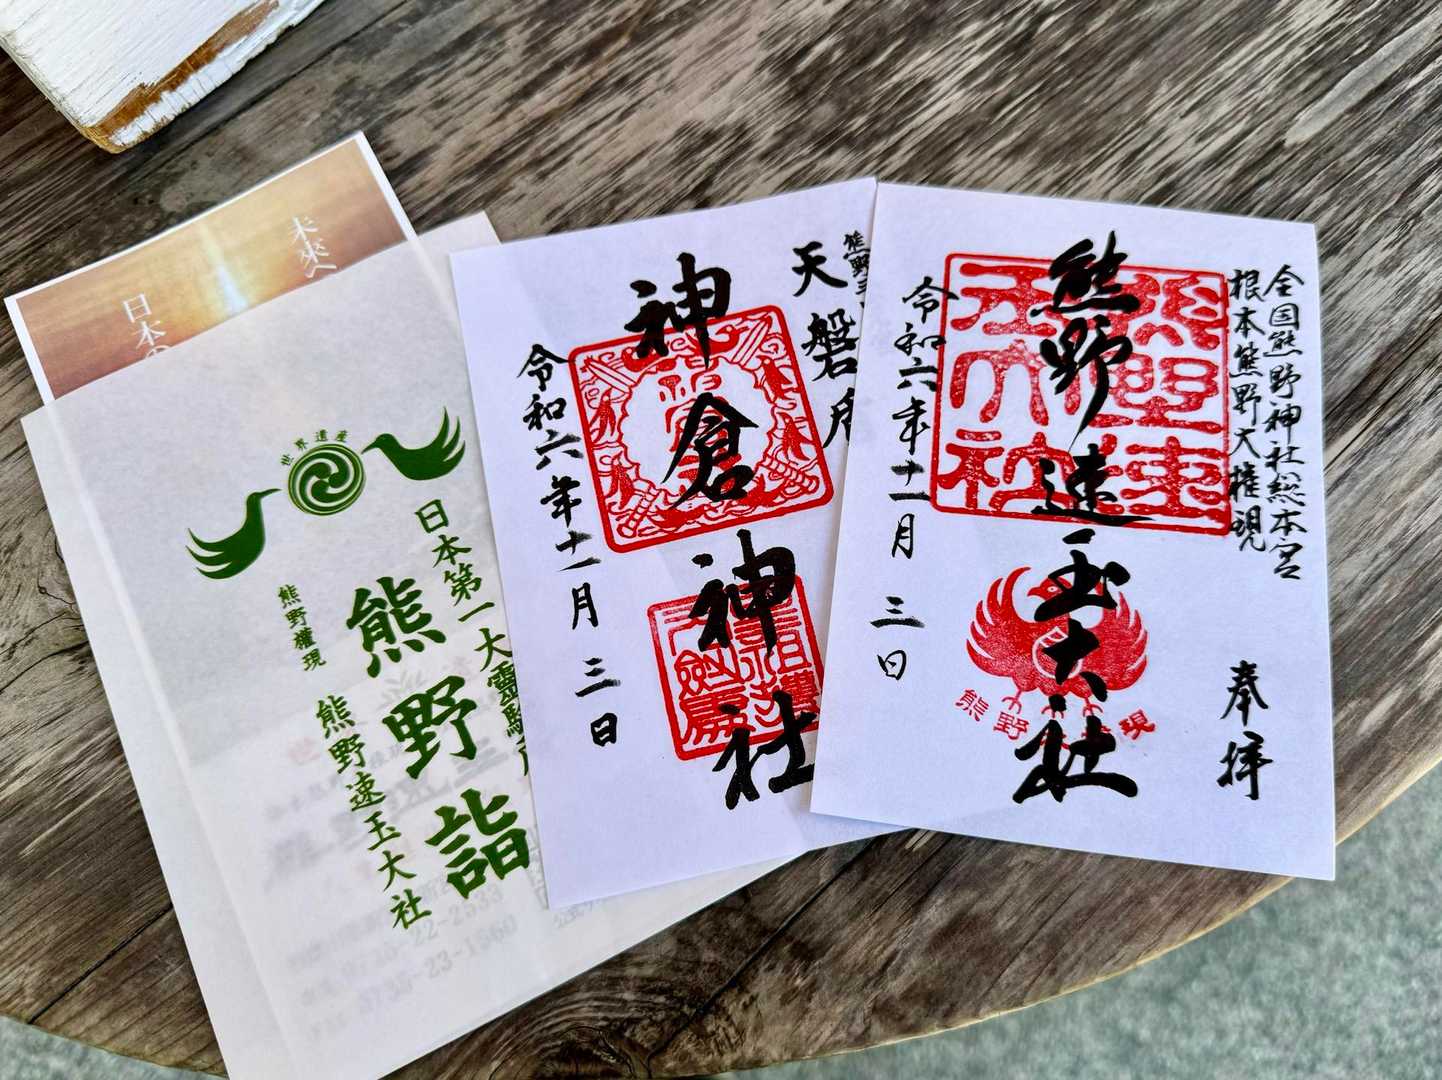 全国熊野神社総本宮
根本熊野大権現
奉拝
熊野速玉大社
令和六年十一月三日
熊野速玉大社
熊野
現
天磐
神倉神社
令和六年十一月三日
世界遺産
日本第一大霊験所
熊野詣
熊野権現
熊野速玉大社
未来へ
日本の